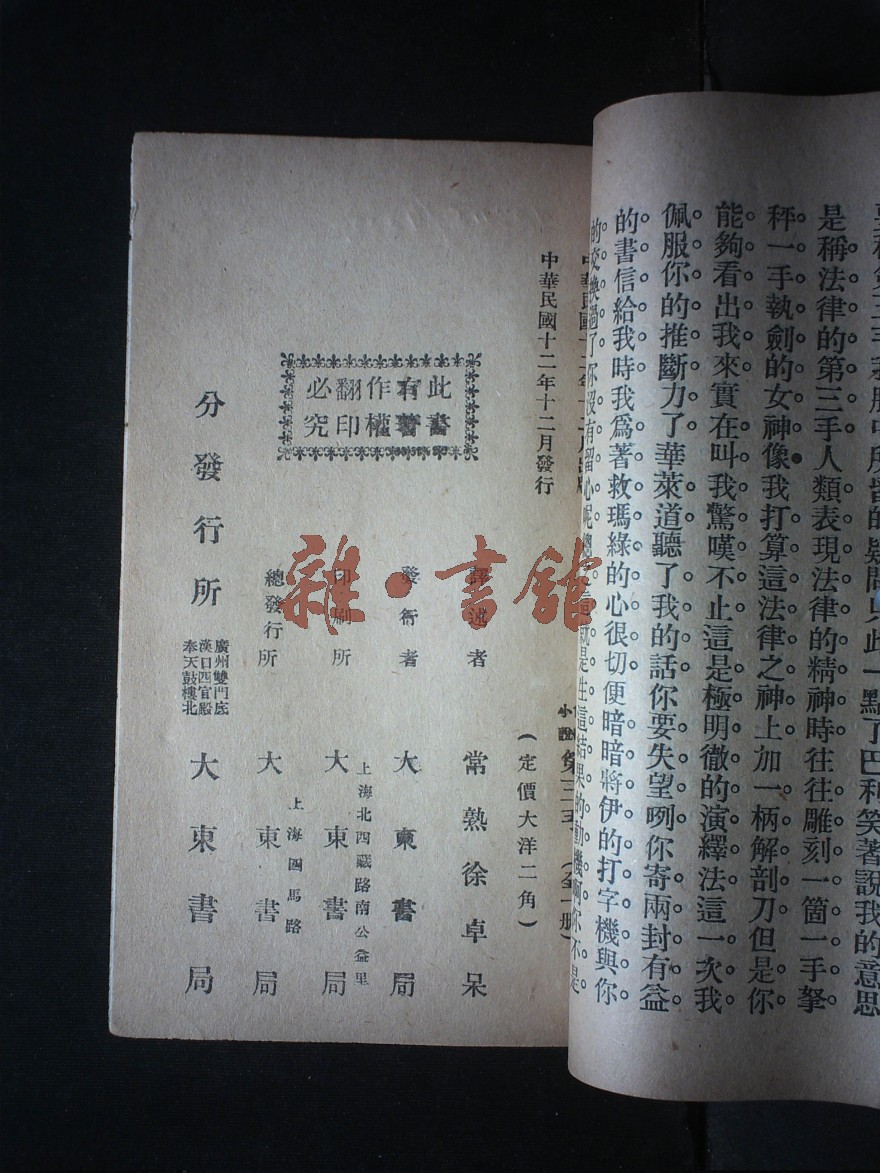 是稱法律的第三手人類表現法律的精神時往往雕刻一箇一手拏
秤一手執劍的女神像我打算這法律之神上加一柄解剖刀但是你
能夠看出我來實在叫我驚嘆不止這是極明徹的演繹法這一次我
佩服你的推斷力了華萊道聽了我的話你要失望咧你寄兩封有益
的書信給我時我爲著救瑪綠的心很切便暗暗將伊的打字機與你
的交換過了你沒有留心呢總
中華民國十二年十二月發行
小說第三手(全一册)
(定價大洋二角)
此書有著作權翻印必究
譯述者 常熟徐卓呆
發行者 大東書局
上海北西藏路南公益里
印刷所 大東書局
上海四馬路
總發行所 大東書局
分發行所 大東書局
廣州雙門底
漢口四官殿
奉天鼓樓北
雜·書館